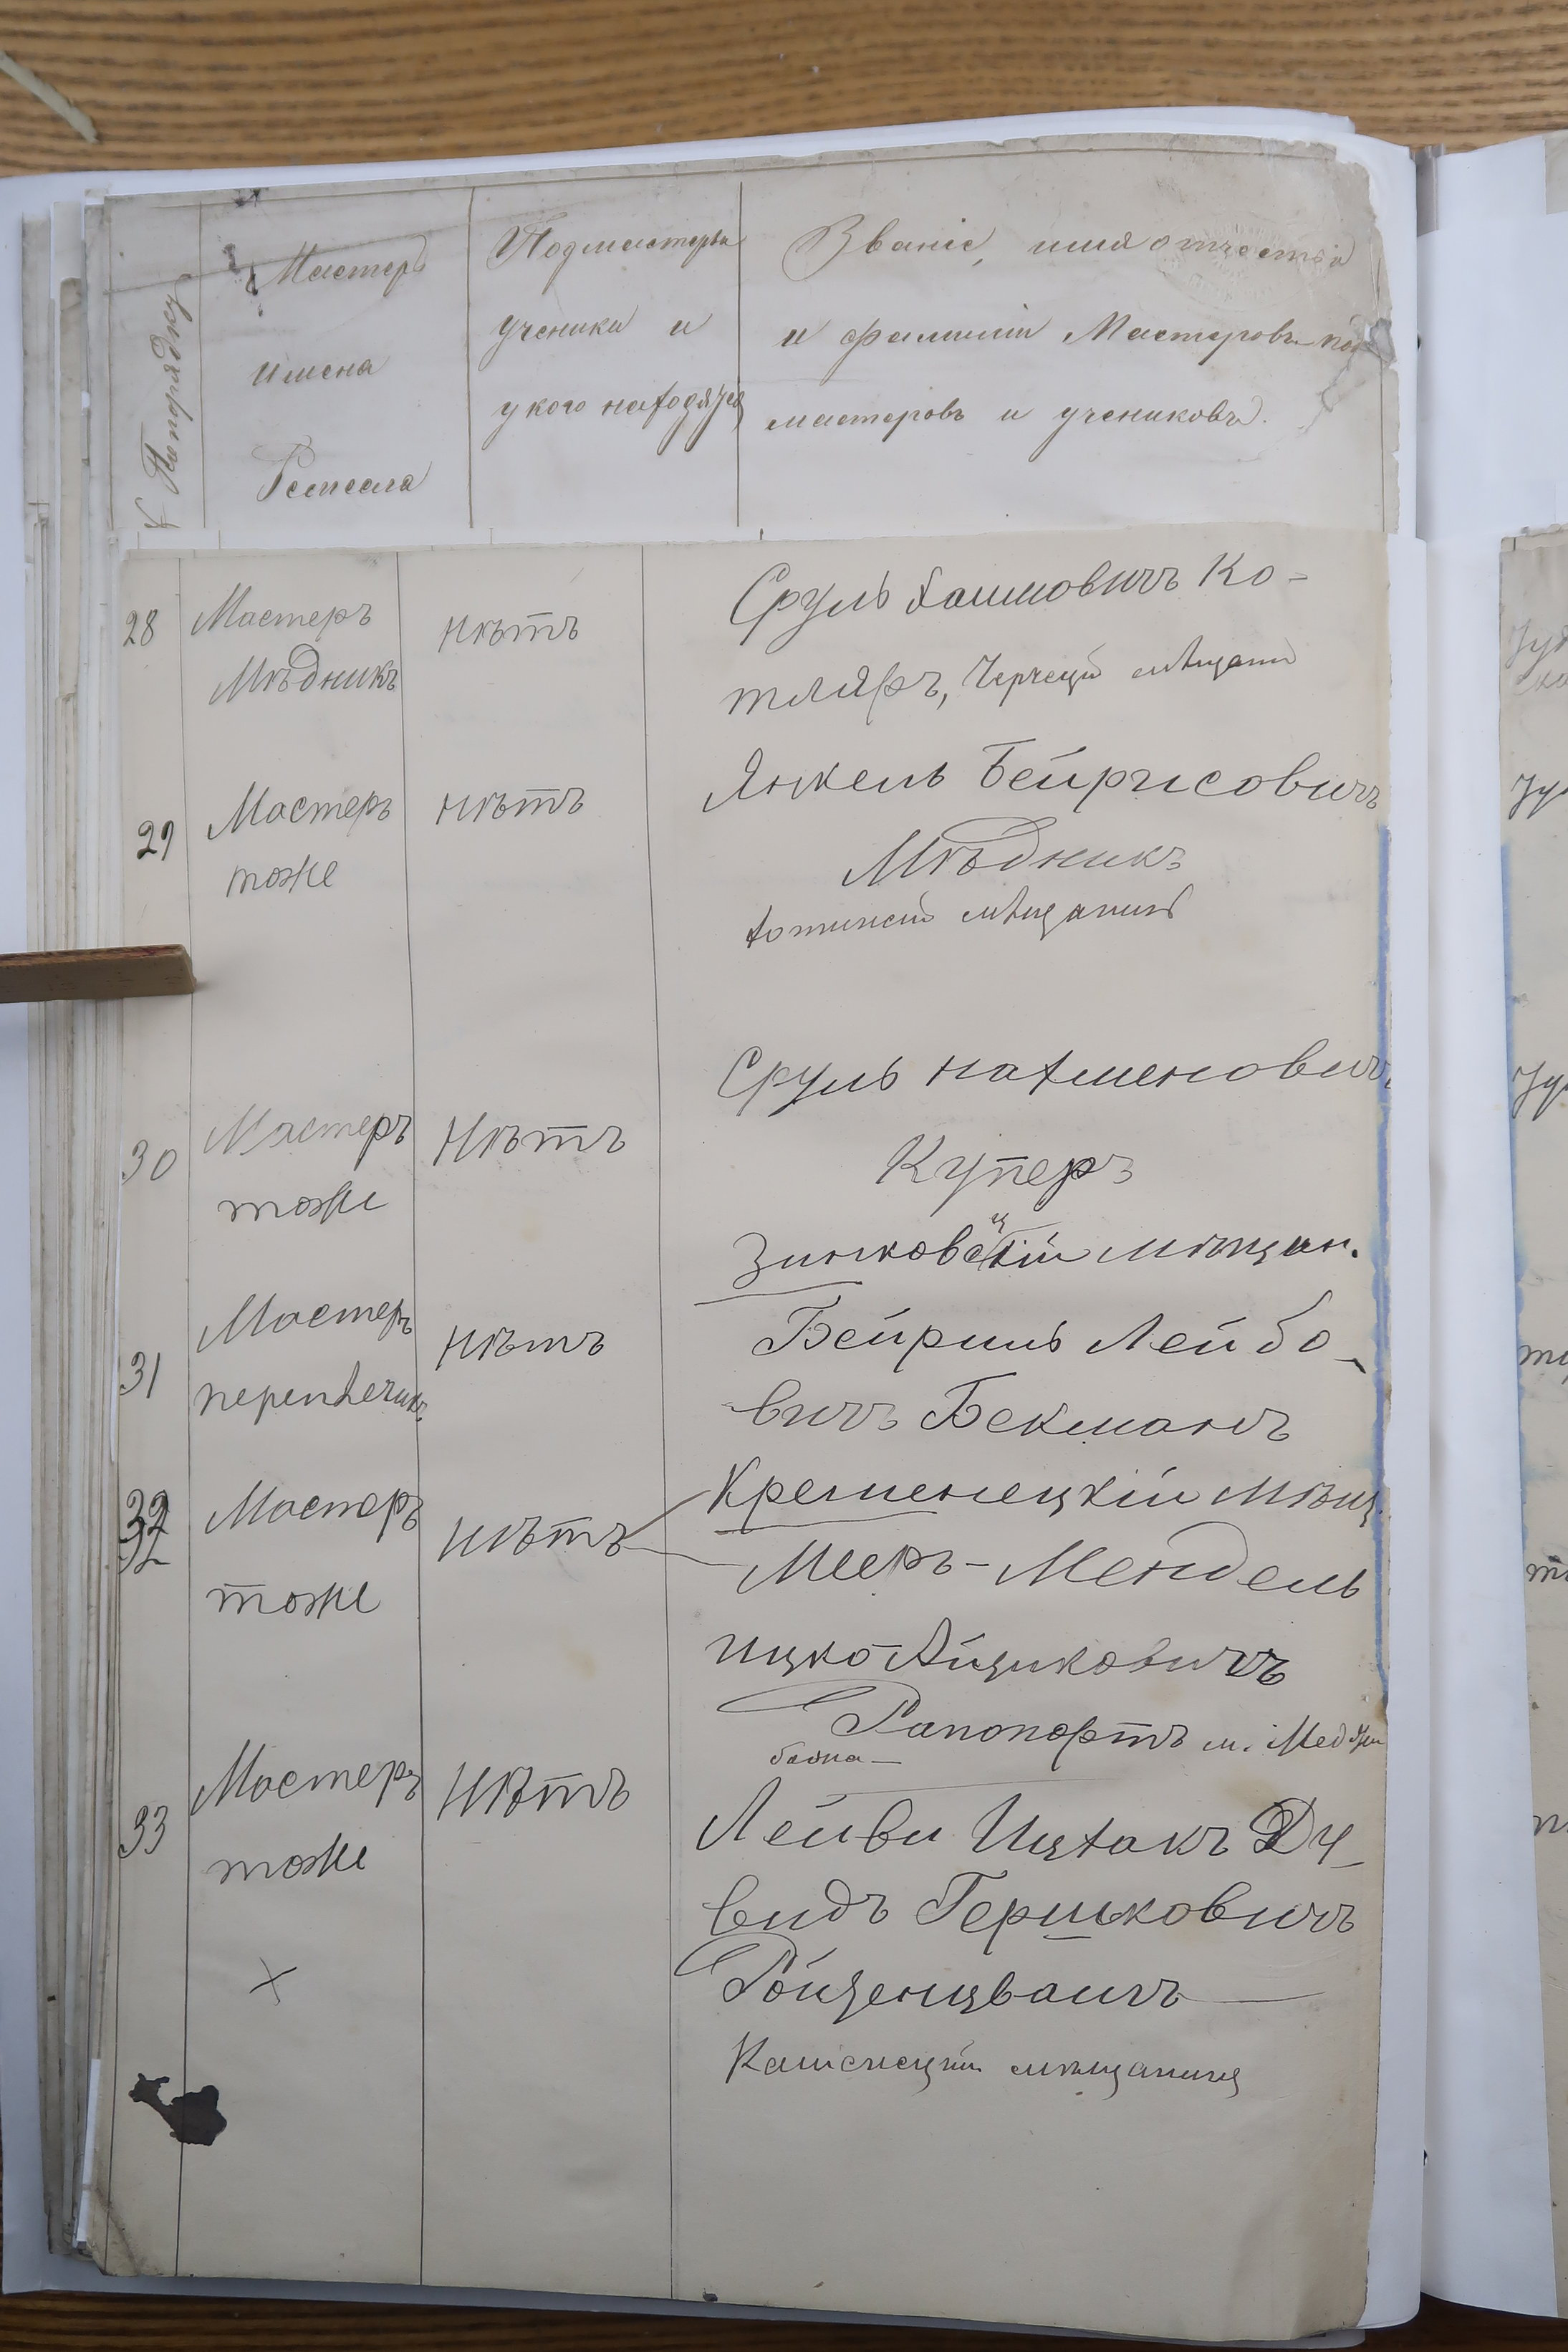 По порядку
Мастеръ
имена
Ремесла
Подмастерья
ученики и
у кого находятся
Званіе, имя отчество
и фамиліи Мастеровъ под
мастеровъ и учениковъ.
28
Мастеръ
Мѣдникъ
Нѣтъ
Сруль Хаимовичъ Ко-
тляръ, мѣщанин
29
Мастеръ
тоже
нѣтъ
Янкель Бейрисовичъ
Мѣдникъ
хотинскій мѣщанинъ
30
Мастеръ
тоже
Нѣтъ
Сруль Нахменовичъ
Куперъ
Зинковецкій мѣщан.
31
Мастеръ
переплетчикъ
Нѣтъ
Бейришъ Лейбо-
вичъ Бекманъ
Кременецкій мѣщ.
32
32
Мастеръ
тоже
нѣтъ
Мееръ-Мендель
Ицко Айзиковичъ
Рапопортъ м. Меджи
божа
33
Мастеръ
тоже
Нѣтъ
Лейви Ицхакъ Ду-
видъ Гершковичъ
Ройзенцвайгъ
Каменецкій мѣщанинъ